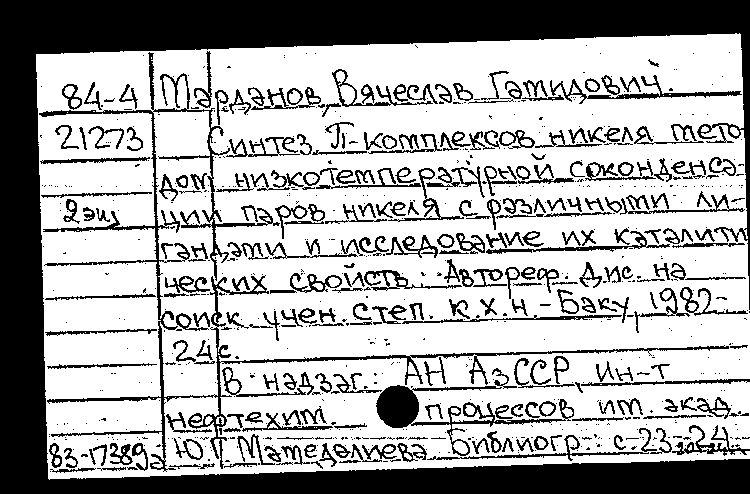 84-4 Мардəнов, Вячеслав Гамидович.
21273 Синтез π-комплексов никеля мето-
дом низкотемпературной соконденса-
2экз ции паров никеля с различными ли-
гандами и исследование их каталити
ческих свойств: Автореф. дис. на
соиск учен. степ. к.х.н.-Баку, 1982-
24с.
В надзаг.: АН АзССР, Ин-т
нефтехим. процессов им акад
83-17389а Ю.Г. Мамедалиева Библиогр.: с.23-24